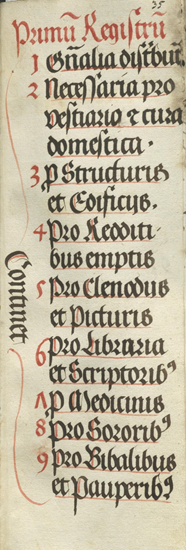 35
Primū Registrū
1 Gn̄alia distbut̄
2 Necessaria pro
vestiario ⁊ cura
domestica.
3 ꝓ Structuris
et Edificijs.
4 Pro Redditi-
bus emptis
5 Pro Clenodijs
et Picturis
6 Pro Libraria
et Scriptoribꝰ
Continet
7 ꝓ Medicinis
8 Pro Sororibꝰ
9 Pro Bibalibus
et Pauperibꝰ